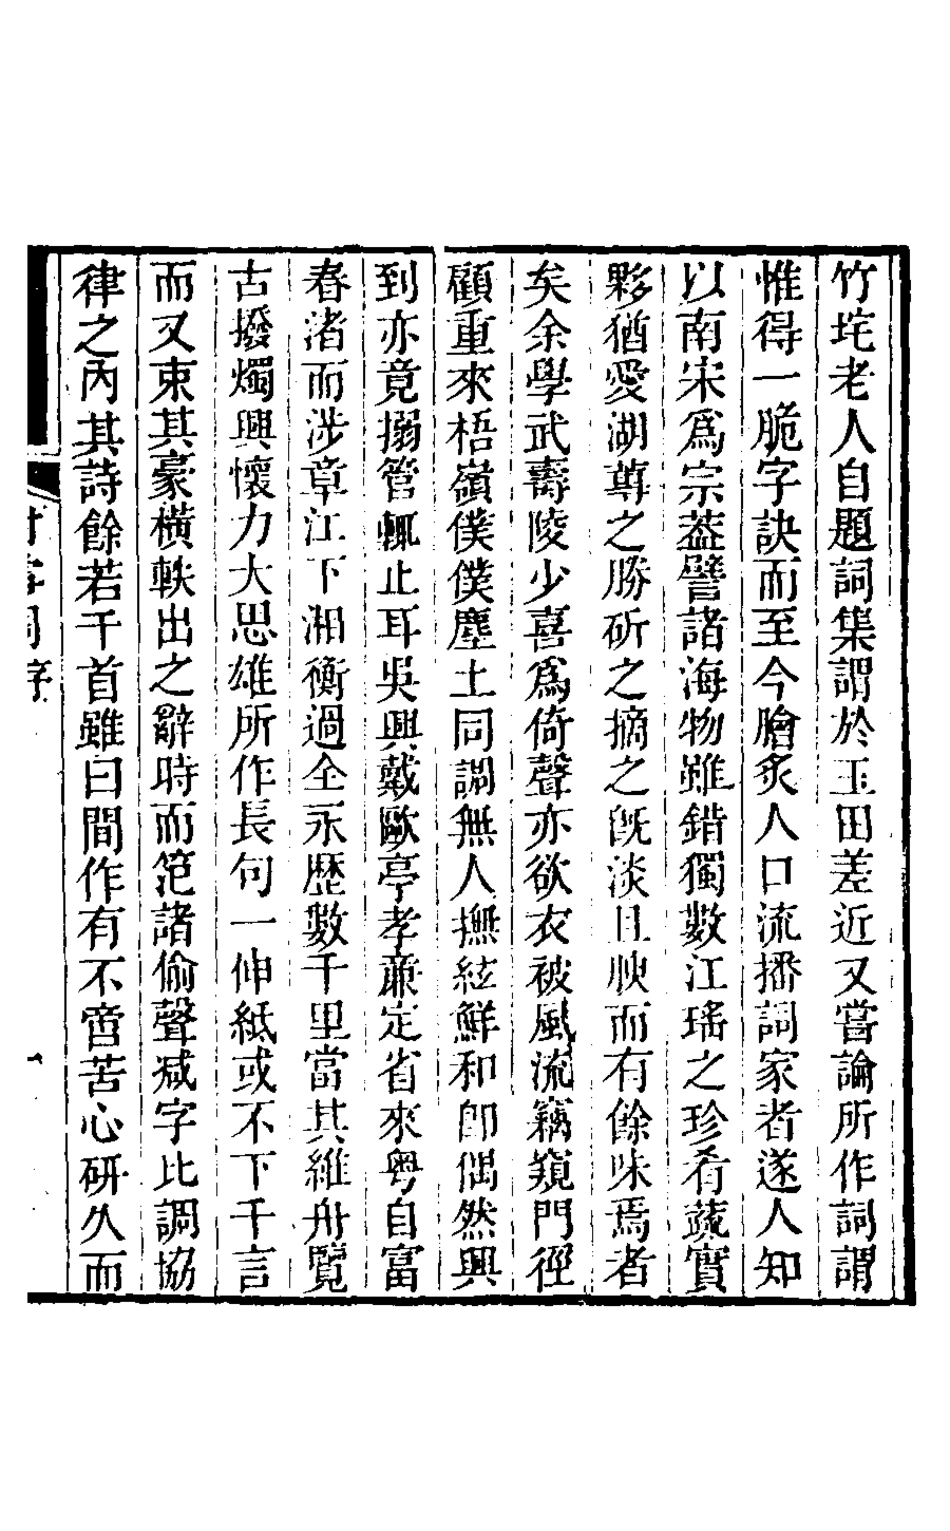 竹垞老人自題詞集謂於玉田差近又嘗論所作詞謂
惟得一脆字訣而至今膾炙人口流播詞家者遂人知
以南宋爲宗葢譬諸海物雖錯獨數江瑤之珍肴蔬實
夥猶愛湖蓴之勝斫之摘之旣淡且腴而有餘味焉者
矣余學武壽陵少喜爲倚聲亦欲衣被風流竊窺門徑
顧重來梧嶺僕僕塵土同調無人撫絃鮮和卽偶然興
到亦竟搦管輒止耳吳興戴歐亭孝亷定省來粤自富
春渚而涉章江下湘衡過全永歷數千里當其維舟覽
古撥燭興懷力大思雄所作長句一伸紙或不下千言
而又束其豪橫軼出之辭時而笵諸偷聲减字比調協
律之內其詩餘若干首雖曰間作有不啻苦心研久而
詞序
一